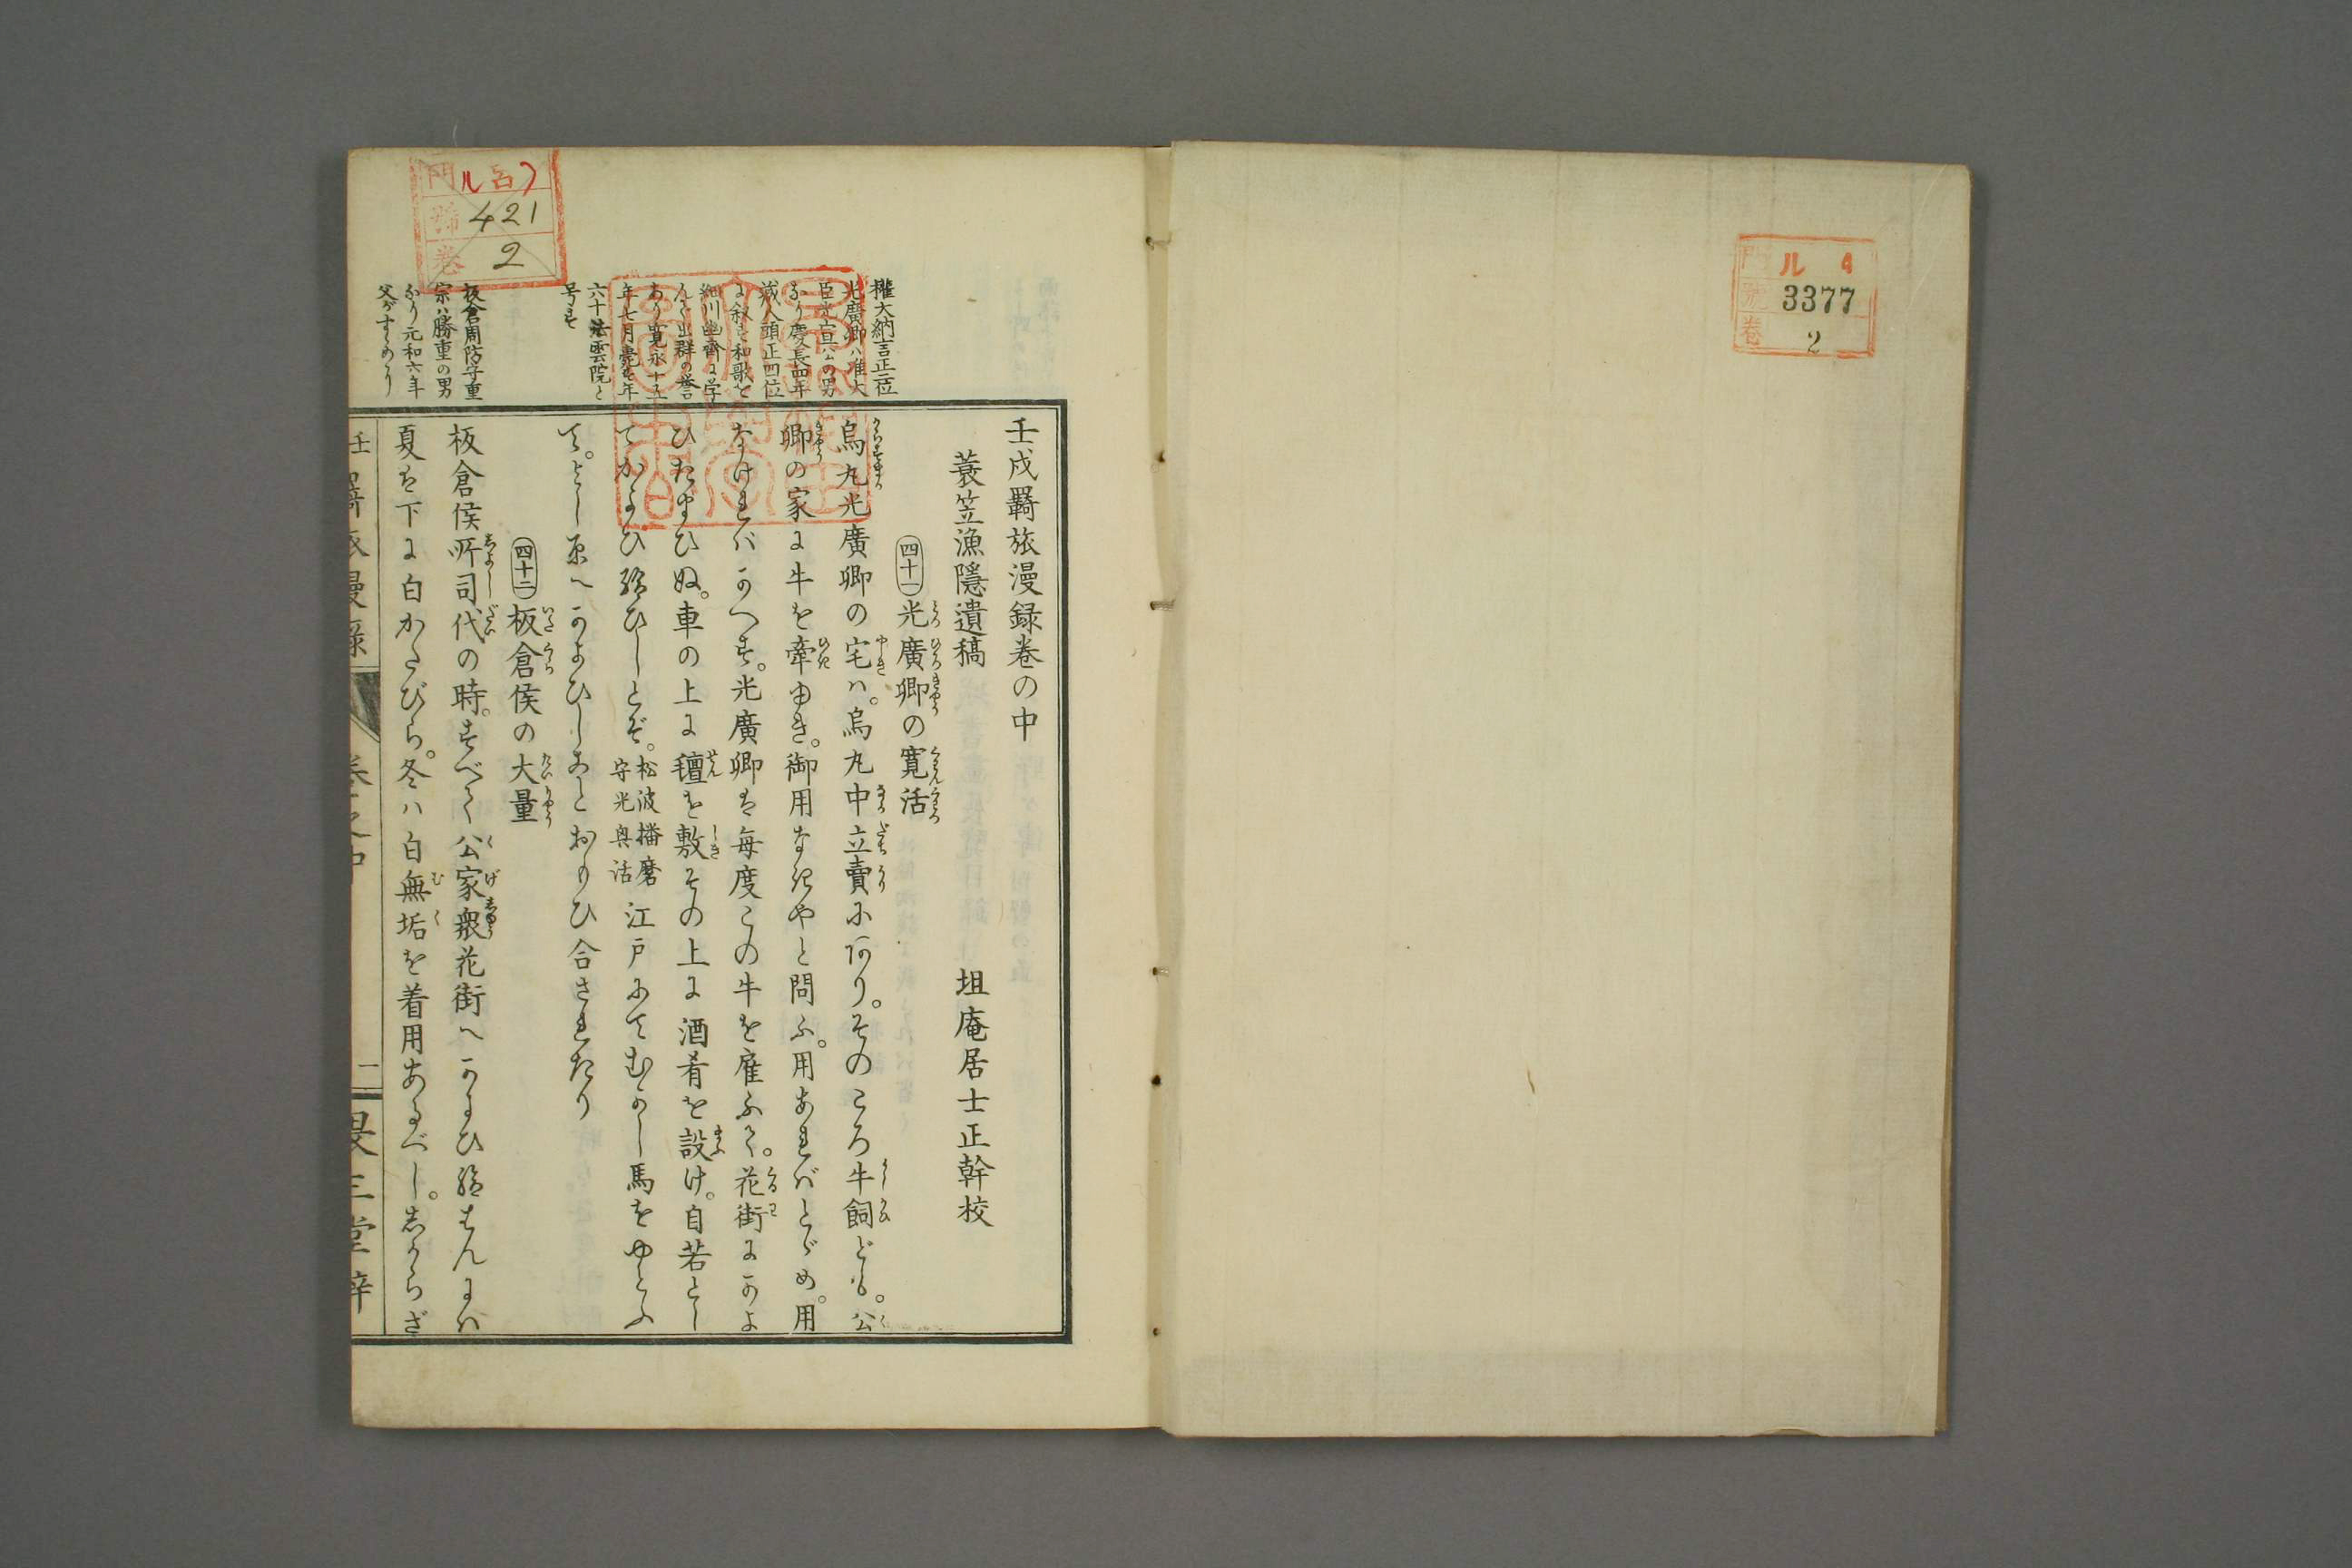 ル 4
3377
2
壬戌羇旅漫録巻の中
蓑笠漁隠遺稿 坦庵居士正幹校
四十一 光廣卿の寛活
烏丸光廣卿の宅ハ。烏丸中立賣にあり。そのころ牛飼ども。公
卿の家に牛を牽ゆき。御用なきやと問ふ。用あればとゞめ。用
なければかへす。光廣卿は毎度この牛を雇ふて。花街にかよ
ひたまひぬ。車の上に氈を敷その上に酒肴を設け。自若とし
てかよひ給ひしとぞ。松波播磨守光興話 江戸にてむかし馬をやとふ
て。よし原へかよひしことおもひ合されたり
四十二 板倉侯の大量
板倉侯所司代の時。すべて公家衆花街へかよひ給はんにハ
夏は下に白かたびら。冬ハ白無垢を着用あるべし。しからざ
權大納言正二位
光廣卿ハ准大
臣光宣公の男
なり慶長四年
蔵人頭正四位
に叙す和歌を
細川幽齋に学
んで出群の誉
あり寛永十五
年七月薨す年
六十法雲院と
号す
板倉周防守重
宗ハ勝重の男
なり元和六年
父がすゝめ
門 ル
號 421
巻 2